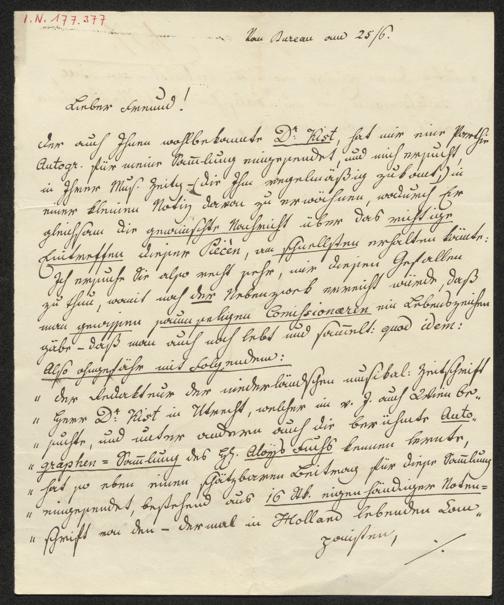 I.N. 177.377
Vom Bureau am 25/6.
Lieber Freund!
Der auch Ihnen wohlbekannte Dr. Kist, hat mir eine Parthie
Autogr. für meine Sammlung eingesendet, und mich ersucht,
in Ihrer Mus. Zeitg (die Ihm regelmäßig zukomt) in
einer kleinen Notiz davon zu erwähnen, wodurch Er
gleichsam die gewünschte Nachricht über das richtige
Eintreffen dieser Pieçen, am schnellsten erhalten könnte:
Ich ersuche Sie also recht sehr, mir diesen Gefallen
zu thun, womit noch der Nebenzweck erreicht würde, daß
man gewissen saumseligen Comissionären ein Lebenszeichen
gäbe – daß man auch noch lebt und sammelt: quod idem:
Also ohngefähr mit Folgendem:
" Der Redakteur der niederländschen musikal: Zeitschrift
" Herr Dr. Kist in Utrecht, welcher im v. J. auch Wien be-
" suchte, und unter andern auch die berühmte Auto-
" graphen=Sammlung des H. Aloys Fuchs kennen lernte,
" hat so eben einen schätzbaren Beitrag für diese Sammlung
" eingesendet, bestehend aus 16 St. eigenhändiger Noten-
" schrift von den – dermal in Holland lebenden Com-
ponisten,